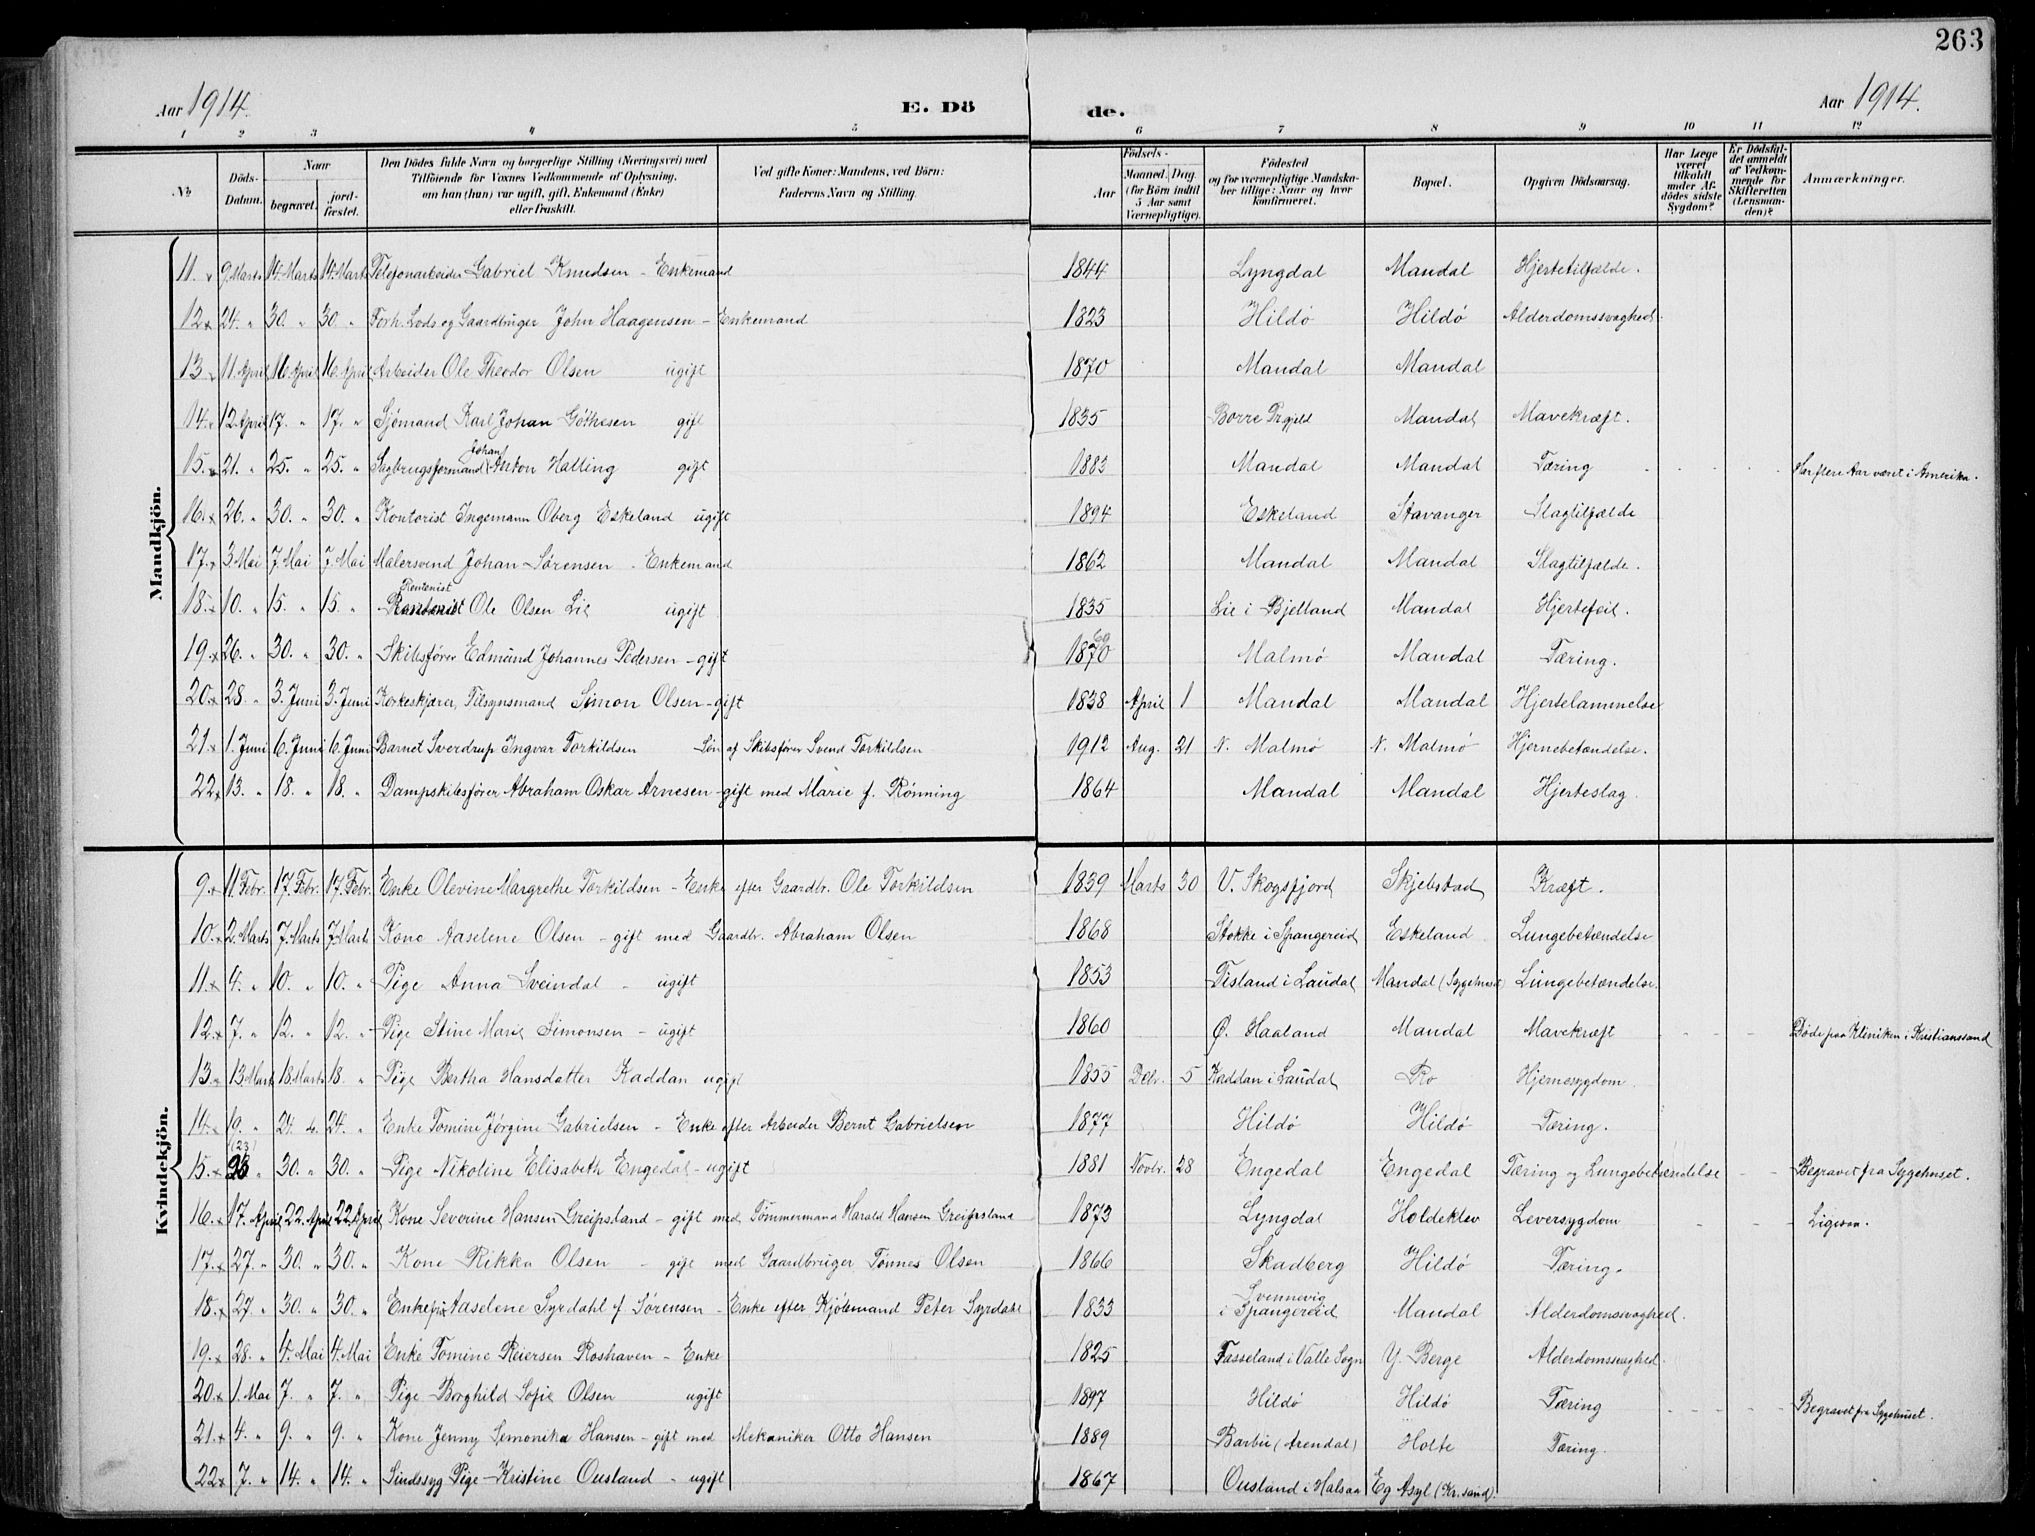 263
Aar 1914. E. Dö de. Aar 1914.
1 2 3 4 5 6 7 8 9 10 11 12
№ Döds-Datum. Naar begravet. jordfæstet. Den Dödes fulde Navn og borgerlige Stilling (Næringsvei) med Tilföiende for Voxnes Vedkommende af Oplysning, om han (hun) var ugift, gift, Enkemand (Enke) eller fraskilt. Ved gifte Koner: Mandens, ved Börn: Faderens Navn og Stilling. Födsels- Aar Maaned. Dag. (for Börn indtil 5 Aar samt Værnepligtige). Födested og for værnepligtige Mandskaber tillige: Naar og hvor konfirmeret. Bopæl. Opgiven Dödsaarsag. Har Læge været tilkaldt under Afdödes sidste Sygdom? Er Dödsfaldet anmeldt af Vedkommende for Skifteretten (Lensmanden)? Anmærkninger.
Mandkjön.
11. 9. Marts 14. Marts 14. Marts Telefonarbeider Gabriel Knudsen - Enkemand 1844 Lyngdal Mandal Hjertetilfælde.
12 24. " 30. " 30. " Forh. Lods og Gaardbruger John Haagensen - Enkemand 1823 Hildø Hildø Alderdomssvaghed.
13 11. April 16. April 16. April Arbeider Ole Theodor Olsen ugift 1870 Mandal Mandal
14. 12. April 17. " 17. " Sjømand Karl Johan Göthesen gift 1835 Borre Prgjeld Mandal Mavekræft.
15. 21. " 25. " 25. " Sagbrugsformand Johan Anton Halling gift 1883 Mandal Mandal Tæring Har flere Aar været i Amerika.
16. 26. " 30. " 30. " Kontorist Ingemann Oberg Eskeland ugift 1894 Eskeland Stavanger Slagtilfælde
17. 3. Mai 7. Mai 7. Mai Malersvend Johan Sørensen - Enkemand 1862 Mandal Mandal Slagtilfælde.
18. 10. " 15. " 15. " Rentenist Ole Olsen Lie ugift 1835 Lie i Bjelland Mandal Hjertefeil.
19. 26. " 30. " 30. " Skibsfører Edmund Johannes Pedersen - gift 1870 69 Malmø Mandal Tæring.
20. 28. " 3. Juni 3. Juni Korkeskjærer, Tilsynsmand Simon Olsen - gift 1838 April 1 Mandal Mandal Hjertelammelse
21. 1. Juni 6. Juni 6. Juni Barnet Sverdrup Ingvar Torkildsen Søn af Skibsfører Svend Torkildsen 1912 Aug. 21 N. Malmø N. Malmø Hjernebetændelse.
22. 13. " 18. " 18. " Dampskibsfører Abraham Oskar Arnesen - gift med Marie f. Rönning 1864 Mandal Mandal Hjerteslag.
Kvindekjön.
9. 11. Febr. 17. Febr. 17. Febr. Enke Olevine Margrethe Torkildsen - Enke efter Gaardbr. Ole Torkildsen 1839 Marts 30 V. Skogsfjord Skjebstad Kræft.
10. 2. Marts 7. Marts 7. Marts Kone Aaselene Olsen - gift med Gaardbr. Abraham Olsen 1868 Stokke i Spangereid Eskeland Lungebetændelse
11. 4. " 10. " 10. " Pige Anna Sveindal - ugift 1853 Tisland i Laudal Mandal (Sygehuset) Lungebetændelse.
12. 7. " 12. " 12. " Pige Stine Marie Simonsen - ugift 1860 Ø. Haaland Mandal Mavekræft Døde paa Kliniken i Kristianssand
13. 13. Marts 18. Marts 18. " Pige Bertha Hansdatter Kaddan ugift 1855 Decbr. 5 Kaddan i Laudal Ro Hjernesygdom
14. 19. " 24. " 24. " Enke Tomine Jørgine Gabrielsen - Enke efter Arbeider Bernt Gabrielsen 1877 Hildø Hildø Tæring.
15. 23 (23) " 30. " 30. " Pige Nikoline Elisabeth Engedal - ugift 1881 Novbr. 28 Engedal Engedal Tæring og Lungebetændelse Begravet fra Sygehuset.
16. 17. April 22. April 22. April Kone Severine Hansen Greipsland - gift med Tømmermand Harald Hansen Greipsland 1873 Lyngdal Holdeklev Leversygdom Ligesaa.
17. 27. " 30. " 30. " Kone Rikka Olsen - gift med Gaardbruger Tønnes Olsen 1866 Skadberg Hildø Tæring.
18. 27. " 30. " 30. " Enkefru Aaselene Syrdahl f. Sørensen - Enke efter Kjøbemand Peter Syrdahl 1833 Svennevig i Spangereid Mandal Alderdomssvaghed.
19. 28. " 4. Mai 4. Mai Enke Tomine Reiersen Roshaven - Enke 1825 Fasseland i Valle Sogn Y. Berge Alderdomssvaghed.
20. 1. Mai 7. " 7. " Pige Borghild Sofie Olsen ugift 1897 Hildø Hildø Tæring Begravet fra Sygehuset.
21. 4. " 9. " 9. " Kone Jenny Semonika Hansen - gift med Mekaniker Otto Hansen 1889 Barbu (Arendal) Holte Tæring.
22. 7. " 14. " 14. " Sindssyg Pige Kristine Ousland - ugift 1867 Ousland i Halsaa Eg Asyl (Kr.sand).